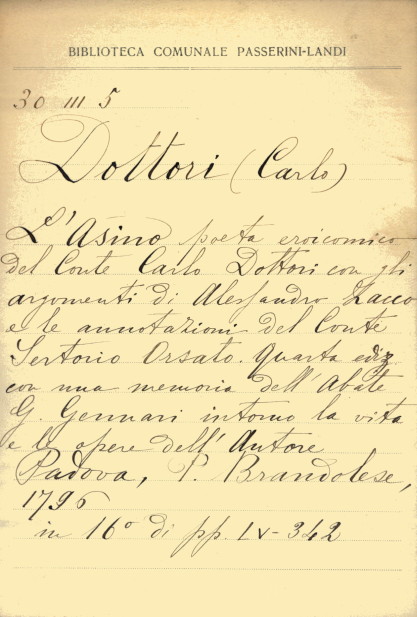 BIBLIOTECA COMUNALE PASSERINI-LANDI
30 III 5
Dottori (Carlo)
L'Asino poeta eroicomico
del Conte Carlo Dottori con gli
argomenti di Alessandro Zacco
e le annotazioni del Conte
Sertorio Orsato. Quarta ediz
con una memoria dell'Abate
G. Gennari intorno la vita
e le opere dell'Autore
Padova, P. Brandolese,
1796
in 16° di pp. LV-342